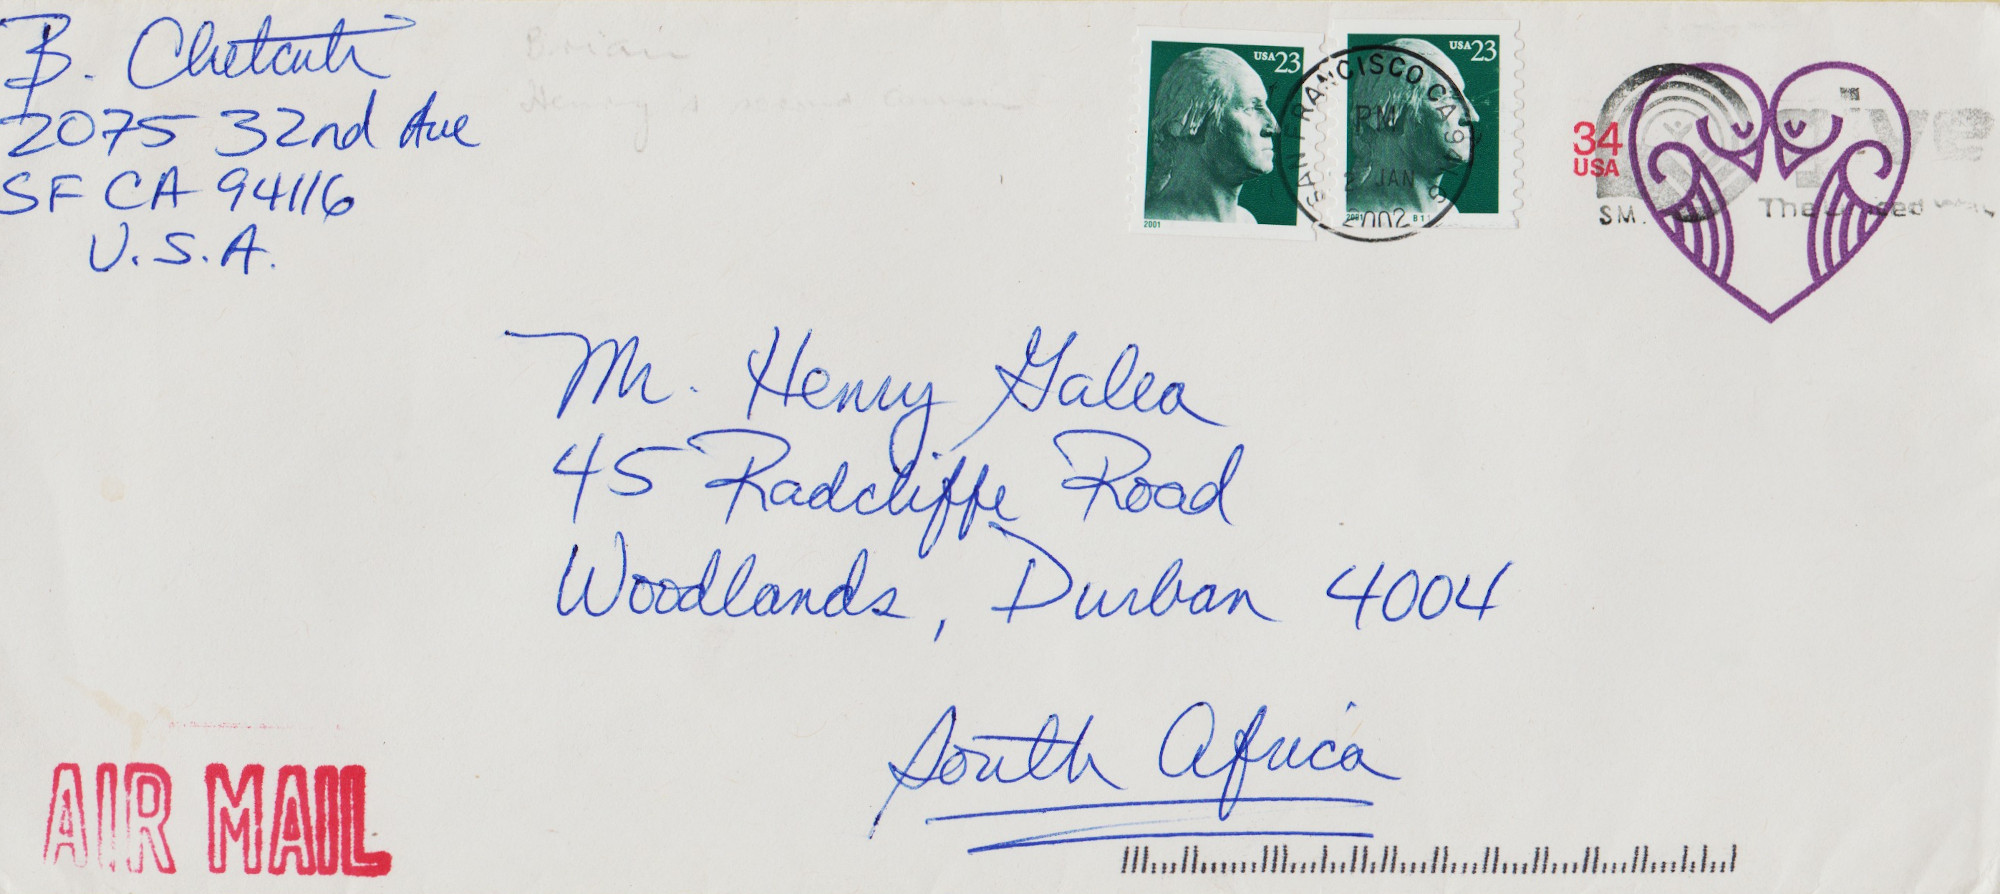 B. Chetcuti
2075 32nd Ave
SF CA 94116
U.S.A.
Brian
Henry's second cousin
USA 23
2001
USA 23
2001 B11
SAN FRANCISCO CA 941
PM
2 JAN
2002
34
USA
give
SM.
The United Way
Mr. Henry Galea
45 Radcliffe Road
Woodlands, Durban 4004
South Africa
AIR MAIL